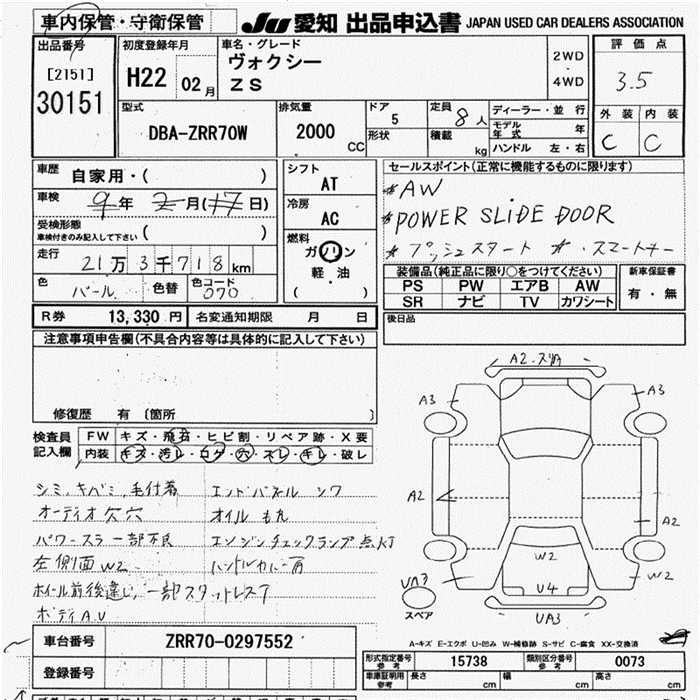 車内保管・守衛保管
JU 愛知 出品申込書 JAPAN USED CAR DEALERS ASSOCIATION
出品番号
[2151]
30151
初度登録年月
H22 02月
車名・グレード
ヴォクシー
ZS
2WD
・
4WD
評価点
3.5
外装 内装
C C
型式
DBA-ZRR70W
排気量
2000
CC
ドア
5
形状
定員
8人
積載
kg
ディーラー・並行
モデル年式 年
ハンドル 左・右
車歴
自家用・( )
車検
9年 2月(17日)
受検形態
車検付きのみ記入して下さい ( )
走行
21万3千718km
色
パール
色替
色コード
070
シフト
AT
冷房
AC
燃料
ガソリン
軽・油
( )
セールスポイント(正常に機能するものに限ります)
*AW
*POWER SLIDE DOOR
*プッシュスタート *スマートキー
装備品(純正品に限り○をつけてください)
PS PW エアB AW
SR ナビ TV カワシート
新車保証書
有・無
R券 13,330円 名変通知期限 月 日
後日品
注意事項申告欄(不具合内容等は具体的に記入して下さい)
修復歴 有 〔箇所 〕
検査員記入欄
FW キズ・飛石・ヒビ割・リペア跡・X要
内装 キズ・汚レ・コゲ・穴・スレ・キレ・破レ
シミ、キバミ、毛付着
オーディオ欠穴
パワースラ一部不良
左側面W2
ホイール前後違い、一部スタッドレスT
ボディA.U
エンドパネルシワ
オイルもれ
エンジンチェックランプ点灯
A2
A3
A3
A2
A2
W2
W2
U4
W2
UA3
UA3
スペア
A-キズ E-エクボ U-凹み W-補修跡 S-サビ C-腐食 XX-交換済
車台番号 ZRR70-0297552
登録番号
型式指定番号 参考 15738 類別区分番号 参考 0073
車庫証明用 参考 長さ cm 幅 cm 高さ cm